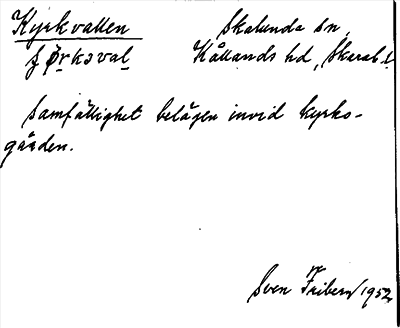 Kyrkvallen Skalunda sn,
Kållands hd, Skarab. l.
Samfällighet belägen invid kyrko-
gården.
Sven Friberg 1952